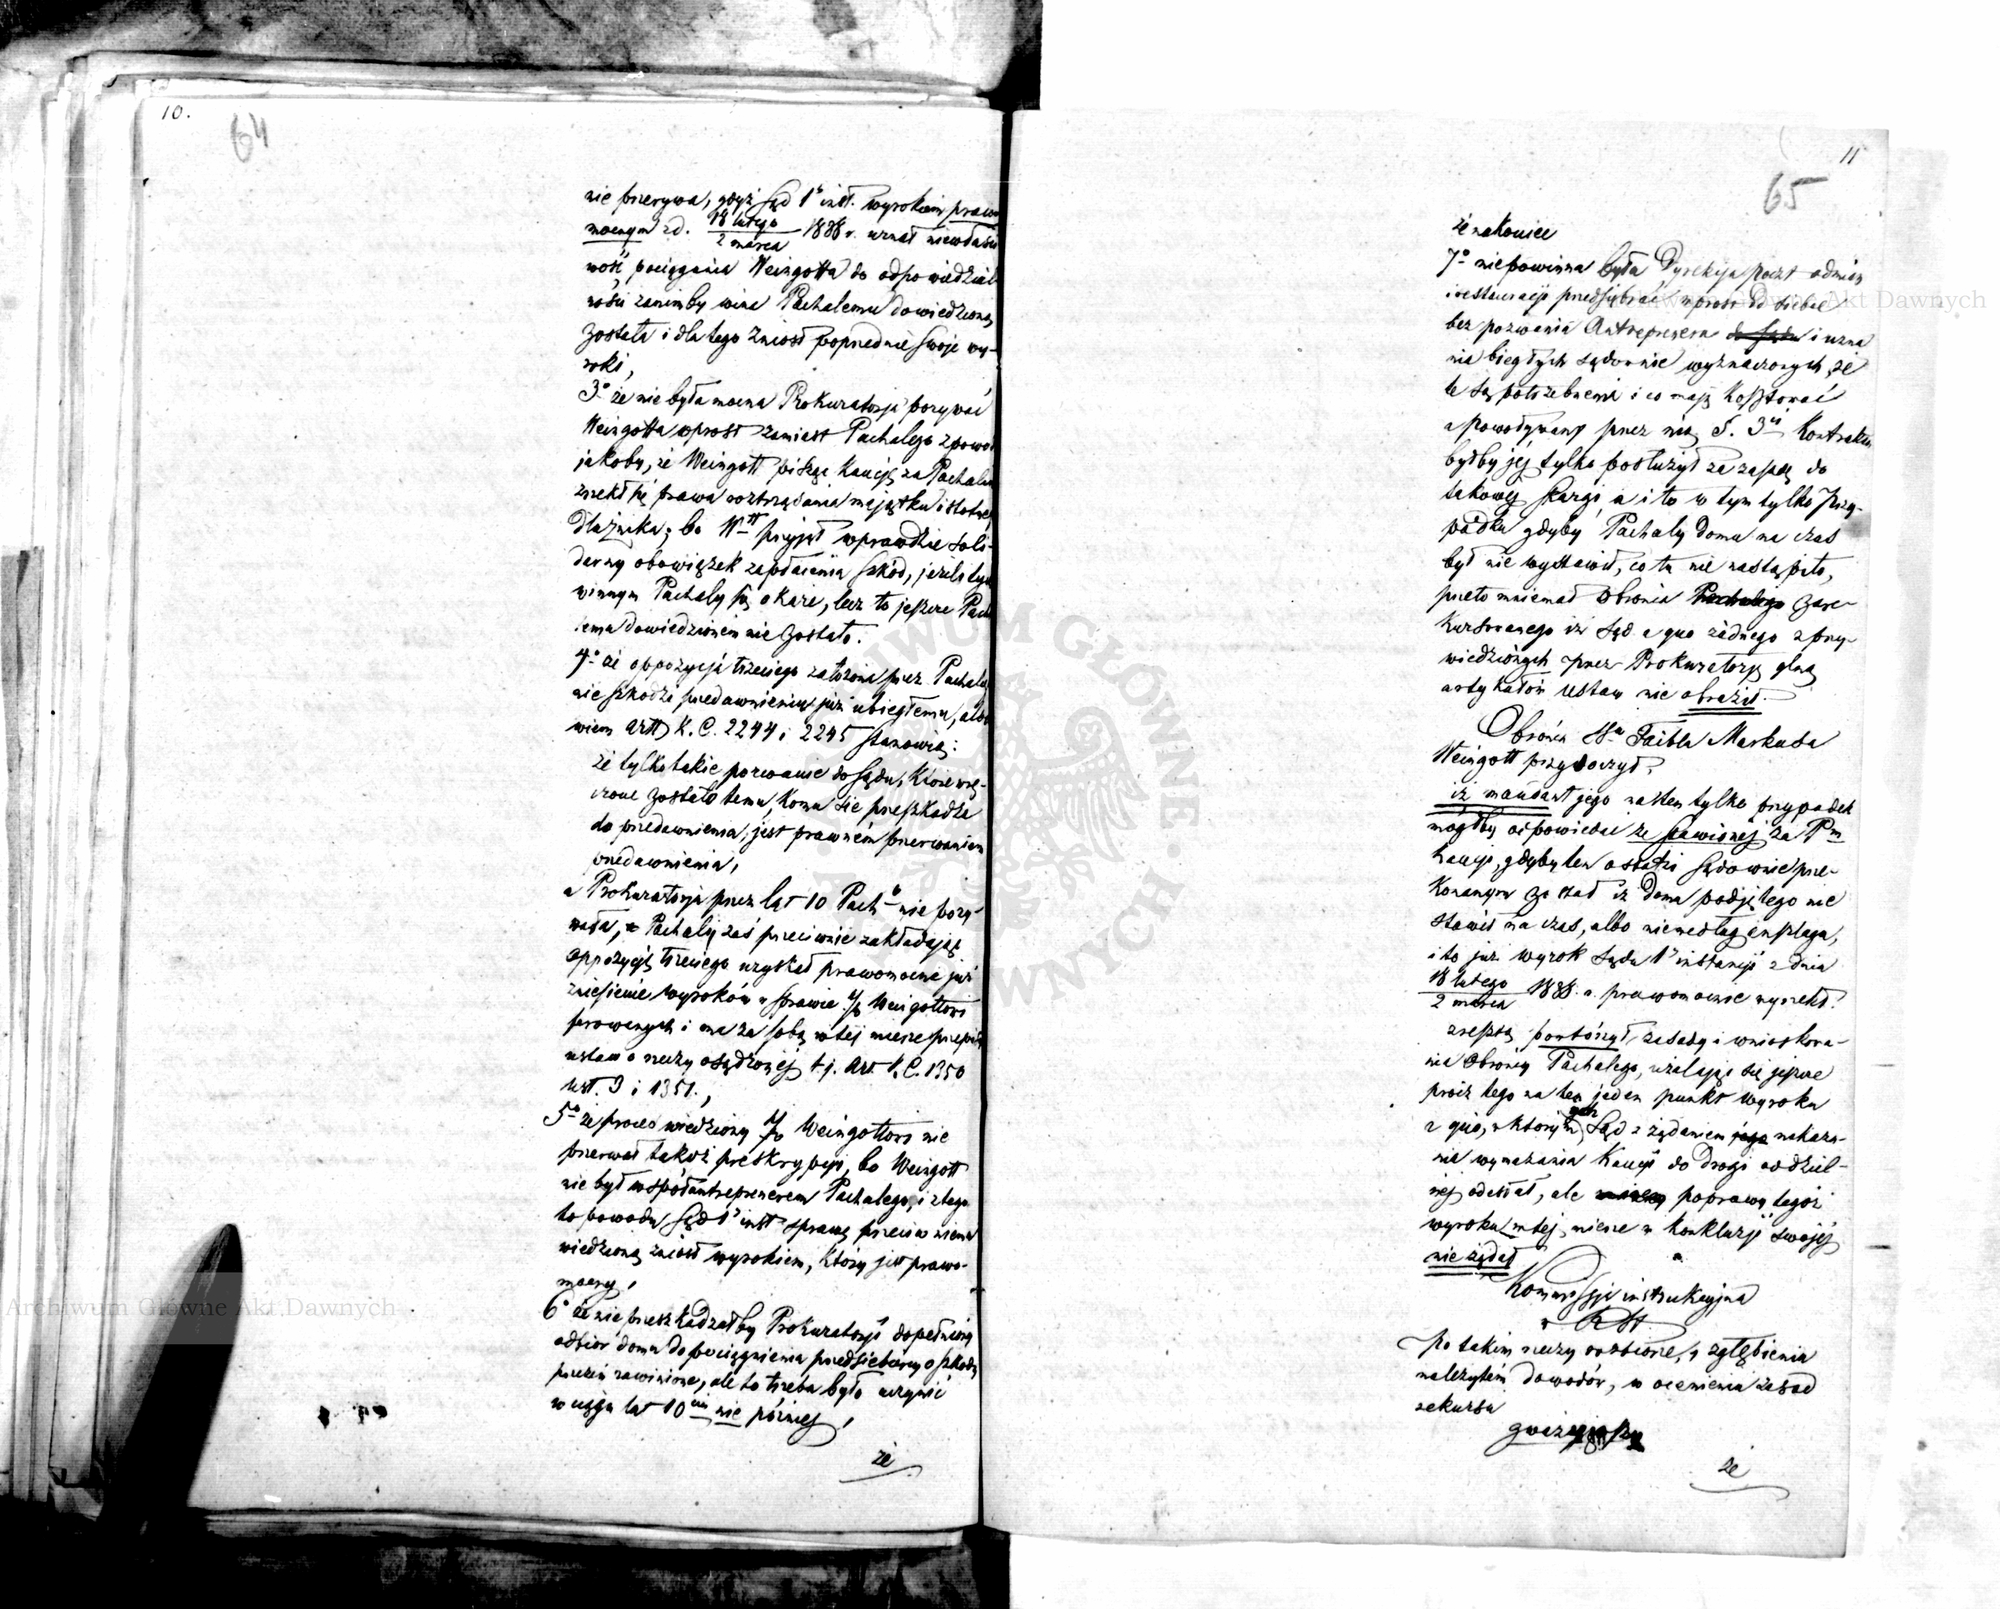 10.
64
nie przerywa, gdyż Sąd 1° inst. wyrokiem prawo
mocnym zd. 18 lutego / 2 marca 1838 r. uznał niewłaści
wość pociągania Weingotta do odpowiedzial
ności zanimby wina Pachalemu dowiedzioną
została i dla tego zniósł poprzednie swoje wy-
roki,
3° że nie była mocna Prokuratorja pozywać
Weingotta wprost zamiast Pachalego z powo
jakoby, że Weingott pisząc kaucję za Pachale
zrzekł się prawa roztrząsania majątku istotne
Dłużnika; bo Wtt przyjął wprawdzie soli-
darny obowiązek zapłacenia szkód, jeżeli tyl
winnym Pachaly się okaże, lecz to jeszcze Pach
lemu dowiedzionem nie zostało.
4° że oppozycja trzeciego założona przez Pachale
nie szkodzi przedawnieniu już ubiegłemu, albo
wiem artt K. C. 2244 i 2245 stanowią:
że tylko takie pozwanie do Sądu, które wrę-
czone zostało temu, komu się przeszkadza
do przedawnienia, jest prawném przerwaniem
przedawnienia,
a Prokuratorja przez lat 10 Pach° nie pozy-
wała, Pachaly zaś przeciwnie zakładając
oppozycję trzeciego uzyskał prawomocne już
zniesienie wyroków w sprawie Weingottowi
ferowanych i ma za sobą w tej mierze przepis
ustaw o rzeczy osądzonej t j. art K. C. 1350
ust. 3 i 1351.,
5° że proces wiedziony Weingottowi nie
przerwał także preskrypcji, bo Weingott
nie był współantreprenerem Pachalego, i z tego
to powodu Sąd 1° inst sprawę przeciw niemu
wiedzioną zniósł wyrokiem, który jest prawo-
mocny,
6° że nie przeszkadzałby Prokuratorji dopełniony
odbiór domu do pociągnienia przedsiebiercy o szkody
przezeń zawinione, ale to trzeba było uczynić
w ciągu lat 10ciu nie później,
że
11
65
że nakoniec
7° nie powinna była Dyrekcja poczt odmian
i restauracji przedsiębrać wprost od siebie
bez pozwania Antreprenera do Sądu i uzna
nia biegłych sądownie wyznaczonych, że
te są potrzebnemi i co mają kosztować
a powoływany przez nią §. 3ci Kontraktu
byłby jéj tylko posłużył za zasadę do
takowej skargi, a i to w tym tylko przy-
padku gdyby Pachaly domu na czas
był nie wystawił, co tu nie nastąpiło,
przeto mniemał Obrońca Pachalego zare-
kursowanego iż Sąd a quo żadnego z przy-
wiedzionych przez Prokuratorję glną
artykułów ustaw nie obraził.
Obrońca Taibla Markusa
Weingott przytoczył,
iż mandant jego na ten tylko przypadek
mógłby odpowiedać ze stawionej za Pm
kaucji, gdyby ten ostatni sądownie prze-
konanym został iż Domu podjętego nie
stawił na czas, albo nie według anszlagu,
i to już wyrok Sądu 1° instancji z dnia
18 lutego / 2 marca 1838. r. prawomocnie wyrzekł,
zresztą powtórzył zasady i wnioskowa-
nia Obrońcy Pachalego, użalając się jeszcze
prócz tego na ten jeden punkt wyroku
a quo, w którym Sąd z żądaniem jego nakaza-
nia wymazania kaucji do drogi oddziel-
nej odesłał, ale poprawy tegoż
wyroku w tej mierze w konkluzji swojej
nie żądał
Kommissja instrukcyjna
po takim rzeczy rozbiorze, zgłębieniu
należytem dowodów, w ocenieniu zasad
rekursu
że